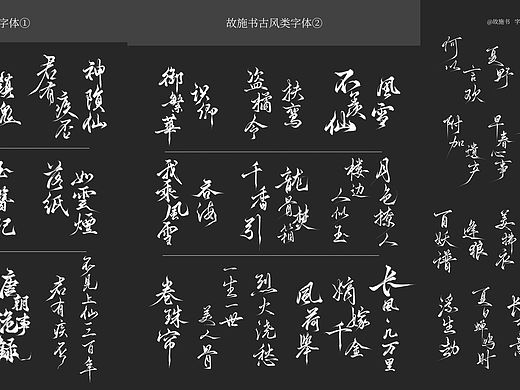 字体①
神陨仙
君有疾否
镇鬼
如雲煙
落纸
不见上仙三百年
君有疾否
唐朝
故施书古风类字体②
風雪
不羡仙
扶鸾
盗摘令
枳御
御繁華
月色撩人
楼边人似玉
龍骨焚箱
千香引
吞海
我乘風雪
长風几万里
嫡嫁千金
風荷舉
烈火浇愁
美人骨
一生一世
卷珠帘
@故施书 字
夏野
言欢
何以
早春心事
遺产
附加
美拂衣
逢狼
百妖谱
夏日蝉鸣时
浮生劫